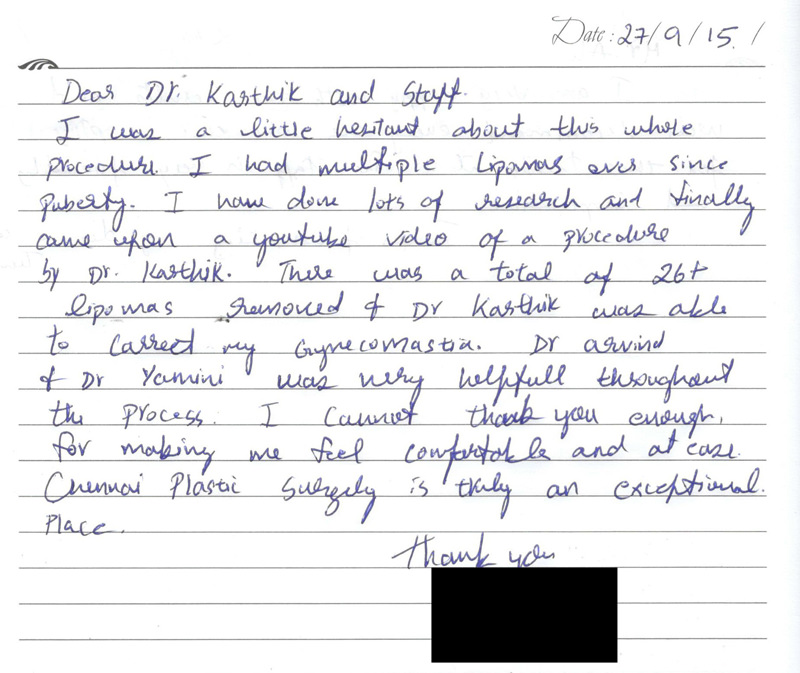 Date: 27/9/15. /
Dear Dr. Karthik and Staff.
I was a little hesitant about this whole
procedure. I had multiple Lipomas ever since
puberty. I have done lots of research and finally
came upon a youtube video of a procedure
by Dr. Karthik. There was a total of 26+
lipomas removed & Dr Karthik was able
to correct my Gynecomastia. Dr arvind
& Dr Yamini was very helpfull throughout
the process. I cannot thank you enough,
for making me feel comfortable and at ease.
Chennai Plastic Surgely is truly an exceptional.
Place.
Thank you